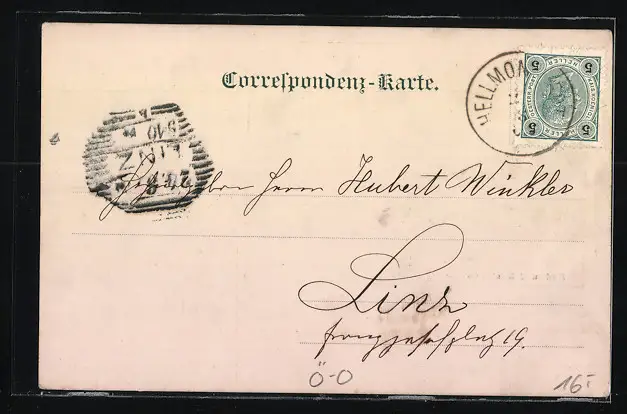 Correspondenz-Karte.
HELLMON
5 HELLER 5
5 5
LINZ
Hochwolgeboren Herrn Hubert Winkler
Linz
Franz Josefplatz 19.
Ö-O
16.-